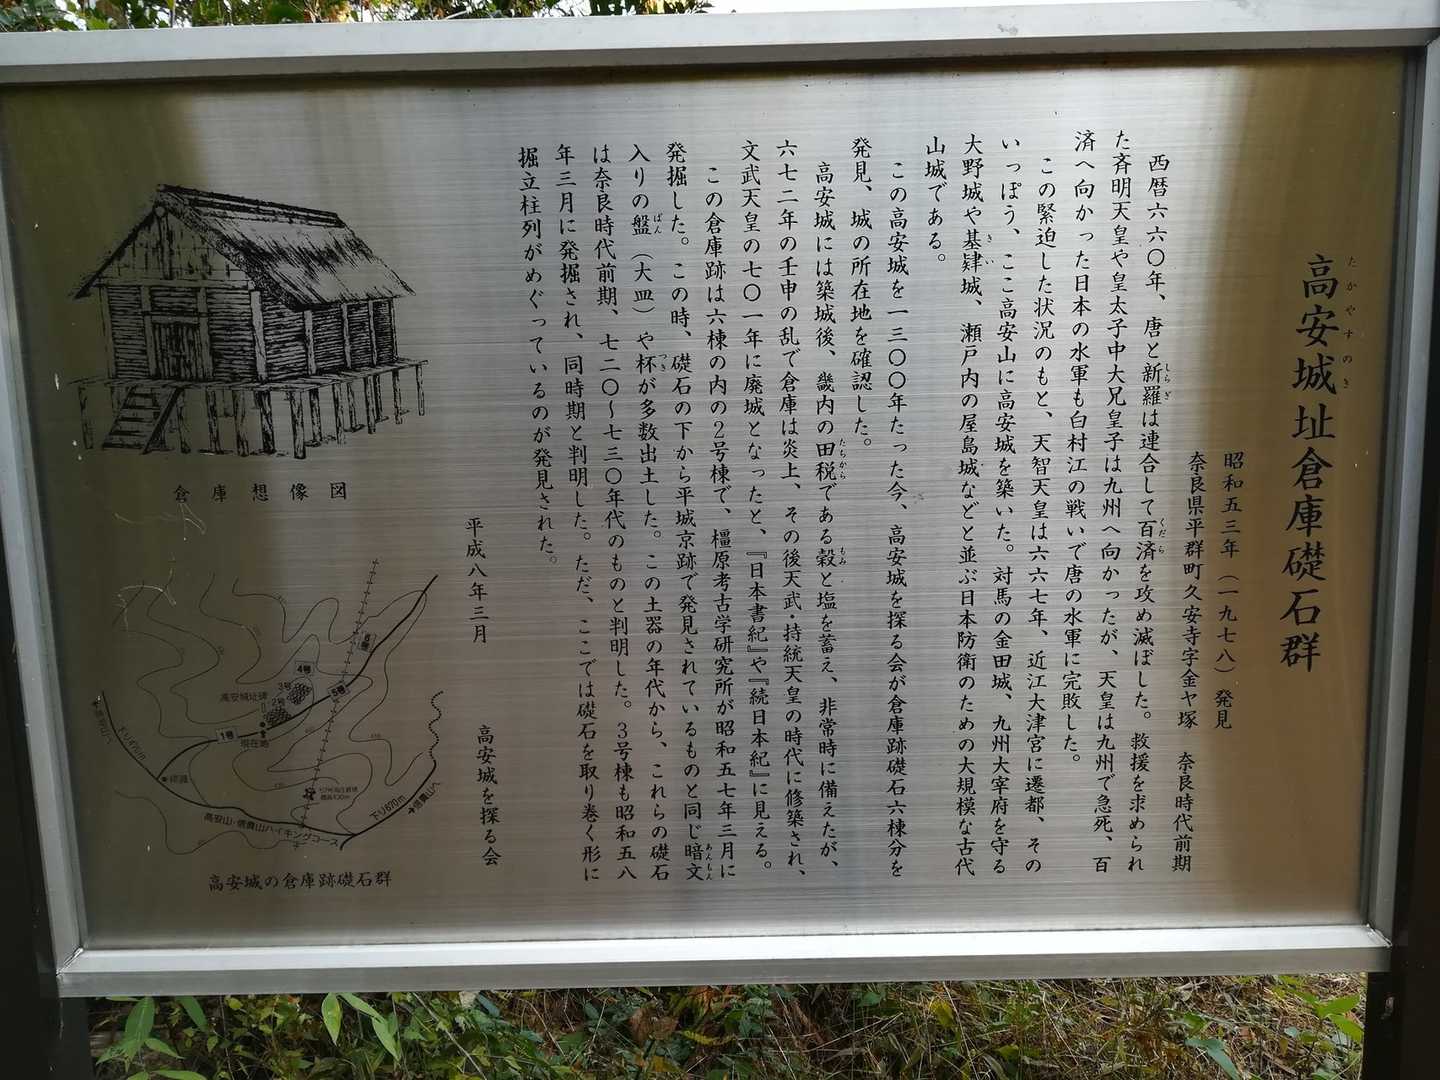 高安城址倉庫礎石群
たかやすのき
昭和五三年（一九七八）発見
奈良県平群町久安寺字金ヤ塚　奈良時代前期
西暦六六〇年、唐と新羅は連合して百済を攻め滅ぼした。救援を求められ
しらぎ
くだら
た斉明天皇や皇太子中大兄皇子は九州へ向かったが、天皇は九州で急死、百
済へ向かった日本の水軍も白村江の戦いで唐の水軍に完敗した。
この緊迫した状況のもと、天智天皇は六六七年、近江大津宮に遷都、その
いっぽう、ここ高安山に高安城を築いた。対馬の金田城、九州大宰府を守る
大野城や基肄城、瀬戸内の屋島城などと並ぶ日本防衛のための大規模な古代
きい
山城である。
この高安城を一三〇〇年たった今、高安城を探る会が倉庫跡礎石六棟分を
発見、城の所在地を確認した。
高安城には築城後、畿内の田税である穀と塩を蓄え、非常時に備えたが、
たちから
もみ
六七二年の壬申の乱で倉庫は炎上、その後天武・持統天皇の時代に修築され、
文武天皇の七〇一年に廃城となったと、『日本書紀』や『続日本紀』に見える。
この倉庫跡は六棟の内の2号棟で、橿原考古学研究所が昭和五七年三月に
発掘した。この時、礎石の下から平城京跡で発見されているものと同じ暗文
あんもん
入りの盤（大皿）や杯が多数出土した。この土器の年代から、これらの礎石
ばん
つき
は奈良時代前期、七二〇～七三〇年代のものと判明した。3号棟も昭和五八
年三月に発掘され、同時期と判明した。ただ、ここでは礎石を取り巻く形に
掘立柱列がめぐっているのが発見された。
平成八年三月　高安城を探る会
倉庫想像図
6号
5号
4号
3号
2号
高安城址碑
1号
現在地
下り490m
下り670m
信貴山へ
高安山・信貴山ハイキングコース
高安城の倉庫跡礎石群